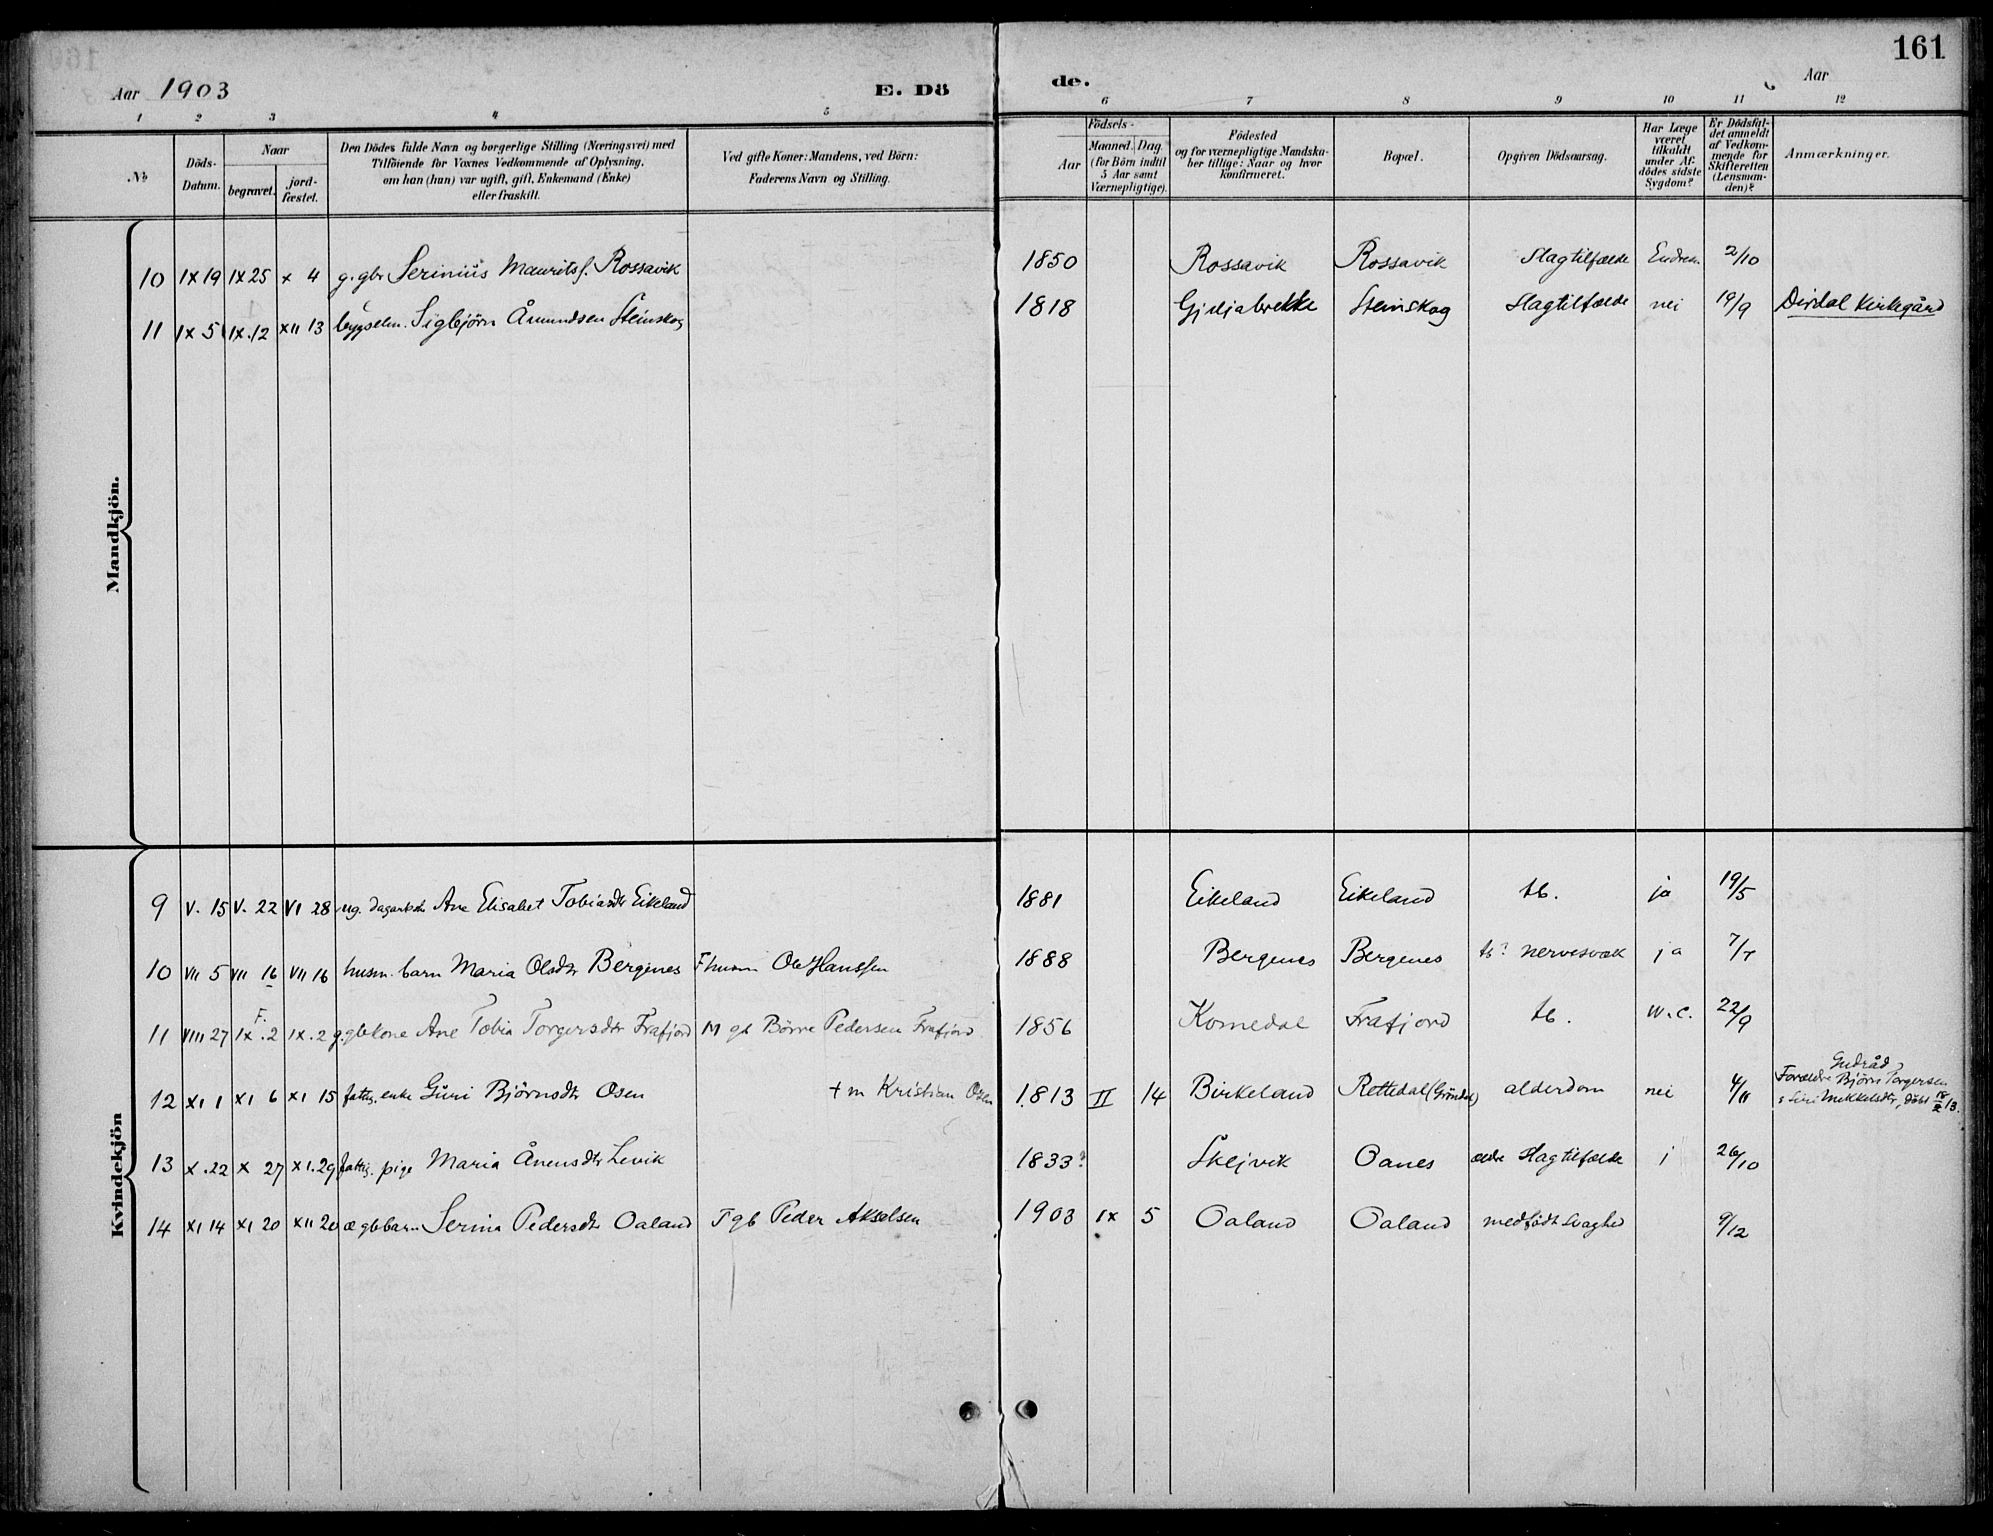 161
Aar 1903
E. Dö
de.
Aar
1 2 3 4 5 6 7 8 9 10 11 12
№
Döds-
Datum.
Naar
begravet.
jord-
fæstet.
Den Dödes fulde Navn og borgerlige Stilling (Næringsvei) med
Tilföiende for Voxnes Vedkommende af Oplysning,
om han (hun) var ugift, gift, Enkemand (Enke)
eller fraskilt.
Ved gifte Koner: Mandens, ved Börn:
Faderens Navn og Stilling.
Födsels-
Aar
Maaned. Dag
(for Börn indtil
5 Aar samt
Værnepligtige).
Födested
og for værnepligtige Mandska-
ber tillige: Naar og hvor
konfirmeret.
Bopæl.
Opgiven Dödsaarsag.
Har Læge
været
tilkaldt
under Af-
dödes sidste
Sygdom?
Er Dödsfal-
det anmeldt
af Vedkom-
mende for
Skifteretten
(Lensman-
den)?
Anmærkninger.
Mandkjön.
10 IX 19 IX 25 X 4 g. gbr Serinius Mauritsf. Rossavik 1850 Rossavik Rossavik Slagtilfælde Endres. 2/10
11 IX 5 IX.12 XII 13 bygselm. Sigbjörn Åmundsen Steinskog 1818 Gjiljabrekke Steinskog Slagtilfælde nei 19/9 Dirdal Kirkegård
Kvindekjön
9 V. 15 V. 22 VI 28 ug. Ane Elisabet Tobiasdtr Eikeland 1881 Eikeland Eikeland tb. ja 19/5
10 VII 5 VII 16 VII 16 husm. barn Maria Olsdtr Bergenes F husm Ole Hanssen 1888 Bergenes Bergenes tb? nervesvæk ja 7/7
F.
11 VIII 27 IX.2 IX.2 g. gbkone Ane Tobia Torgersdtr Frafjord M gb Börre Pedersen Frafjord 1856 Komedal Frafjord tb. w.c. 22/9
12 XI 1 XI 6 XI 15 fattig. enke Guri Björnsdtr Osen + m Kristian Osen 1813 II 14 Birkeland Rettedal (Gröndal) alderdom nei 4/11
Gudråd
Forældre Björn Torgersen
Siri Mikkelsdtr, döbt 13.
13 X.22 X 27 XI.29 fattig. pige Maria Ånensdtr Levik 1833? Skejvik Oanes ældre Slagtilfælde j 26/10
14 XI 14 XI 20 XII 20 æ gbbarn Serina Pedersdtr Oaland F gb Peder Akselsen 1903 IX 5 Oaland Oaland medfödt svaghed 9/12